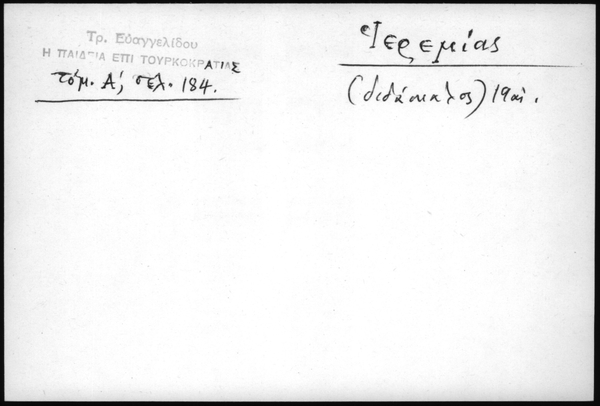 Τρ. Εὐαγγελίδου
Η ΠΑΙΔΕΙΑ ΕΠΙ ΤΟΥΡΚΟΚΡΑΤΙΑΣ
τόμ. Α', σελ. 184.
Ἱερεμίας
(διδάσκαλος) 19αἰ.